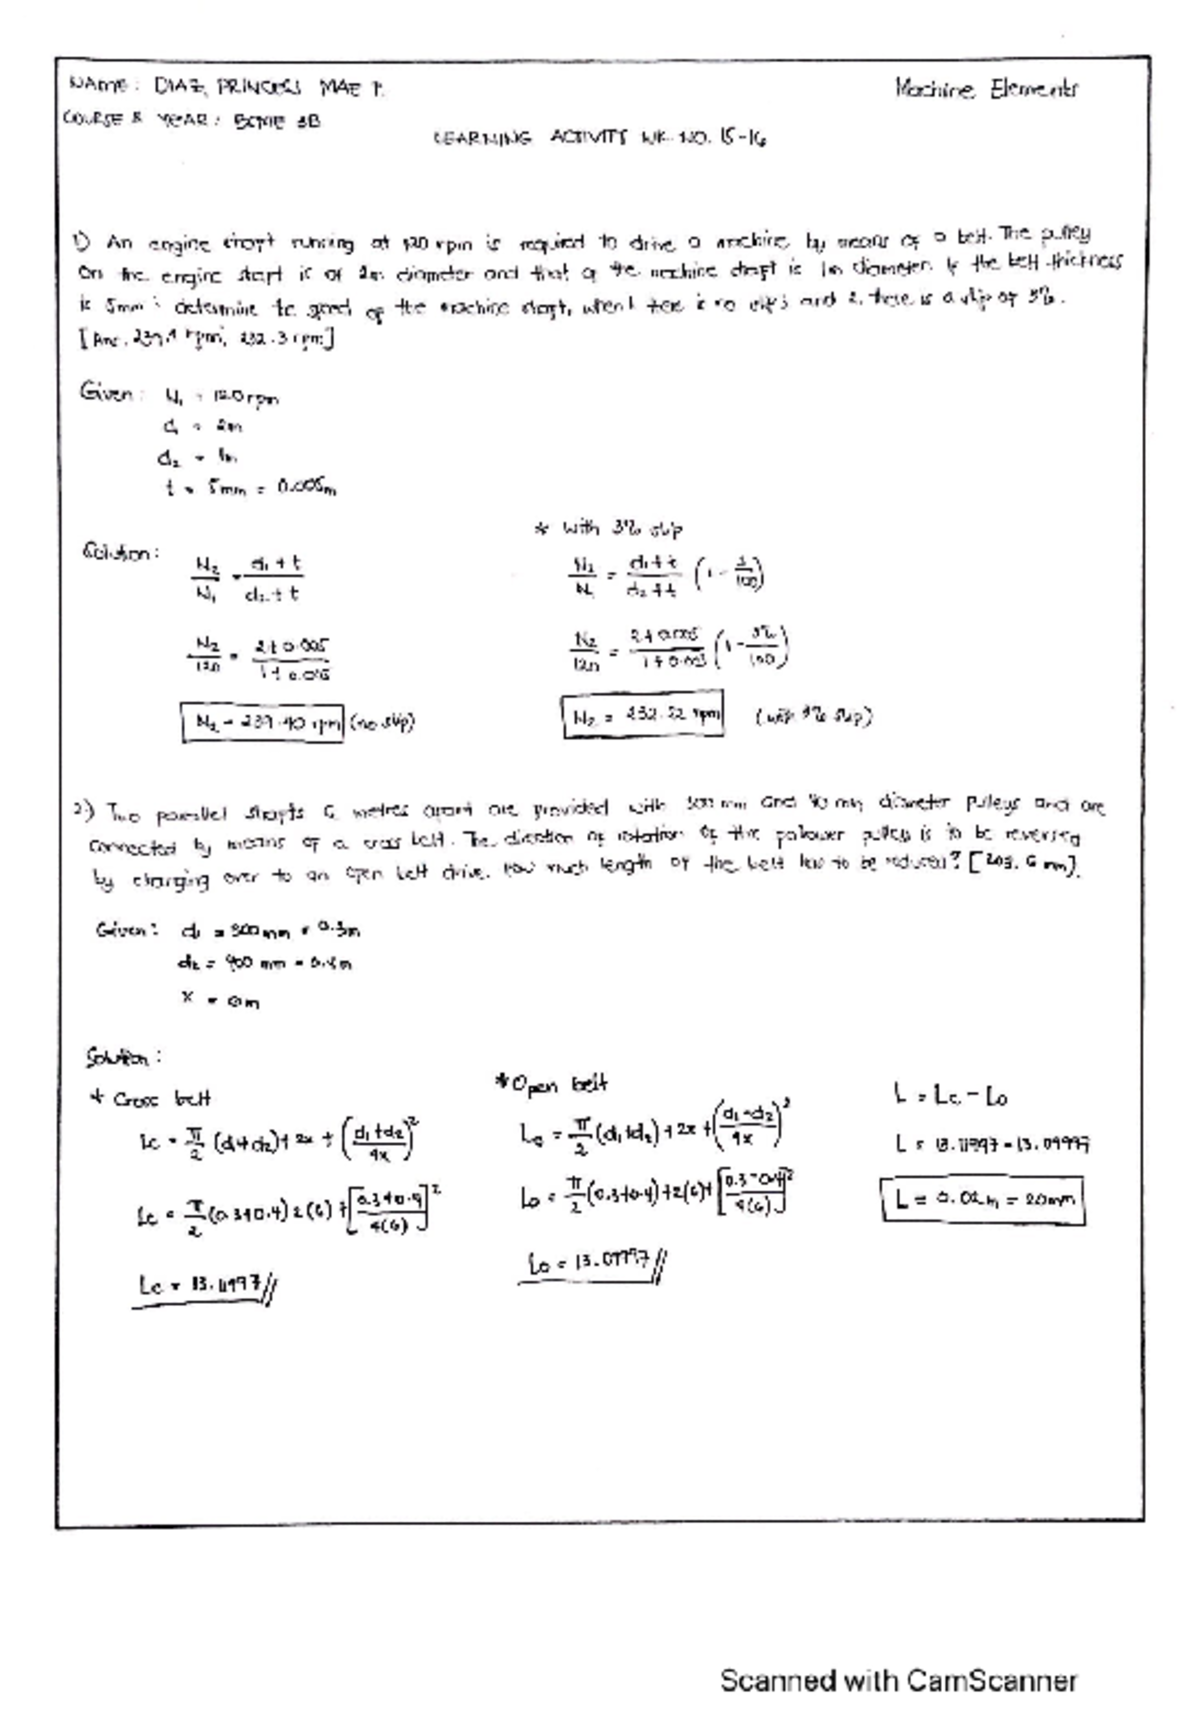 NAME: DIAZ, PRINCESS MAE P.
Machine Elements
COURSE & YEAR: BSME 3B
LEARNING ACTIVITY WK. NO. 15-16
1) An engine shaft running at 120 rpm is required to drive a machine by means of a belt. The pulley
on the engine shaft is of 2m diameter and that of the machine shaft is 1m diameter. If the belt thickness
is 5mm; determine the speed of the machine shaft, when 1. there is no slip; and 2. there is a slip of 3%.
[Ans. 239.4 rpm; 232.3 rpm]
Given: N₁ = 120 rpm
d₁ = 2m
d₂ = 1m
t = 5mm = 0.005m
* with 3% slip
Solution:
N₂/N₁ = d₁+t/d₂+t
N₂/N₁ = d₁+t/d₂+t (1 - s/100)
N₂/120 = 2+0.005/1+0.005
N₂/120 = 2+0.005/1+0.005 (1 - 3%/100)
N₂ = 239.40 rpm (no slip)
N₂ = 232.22 rpm (with 3% slip)
2.) Two parallel shafts 6 metres apart are provided with 300 mm and diameter pulleys and are
connected by means of a cross belt. The direction of rotation of the follower pulley is to be reversed
by changing over to an open belt drive. How much length of the belt has to be reduced? [203.6 mm].
Given: d₁ = 300 mm = 0.3m
d₂ = 400 mm = 0.4m
x = 6m
Solution:
* Cross belt
* Open belt
L = Lc - Lo
Lc = π/2 (d₁+d₂)+2x + (d₁+d₂/4x)²
Lo = π/2 (d₁+d₂)+2x+(d₁-d₂/4x)²
L = 13.11997 - 13.09997
Lc = π/2 (0.3+0.4)2(6)+[0.3+0.4/4(6)]²
Lo = π/2 (0.3+0.4)+2(6)+[0.3-0.4/4(6)]²
L = 0.02m = 20mm
Lc = 13.11997//
Lo = 13.09997//
Scanned with CamScanner